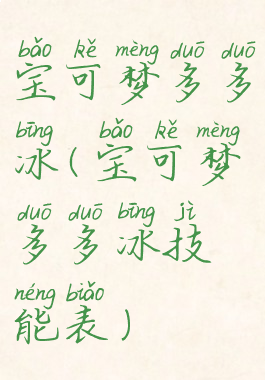 bǎo kě mèng duō duō
宝可梦多多
bīng bǎo kě mèng
冰(宝可梦
duō duō bīng jì
多多冰技
néng biǎo
能表)